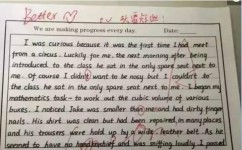 Better
We are making progress every day. Date:
I was curious because it was the first time I had meet
from a circus. Luckily for me, the next morning after being
introduced to the class he sat in the only spare seat next to
me. Of course I didn't want to be nosy but I couldn't to
the class he sat in the only spare seat next to me. I began my
mathematics task - to work out the cubic volume of various
boxes. I noticed Jake was smaller than me and had dirty finger
nails. His shirt was clean but had been repaired in many places
and his trousers were hold up by a wide leather belt. As he
seemed to have no handkerchief and was sniffing loudly I passed